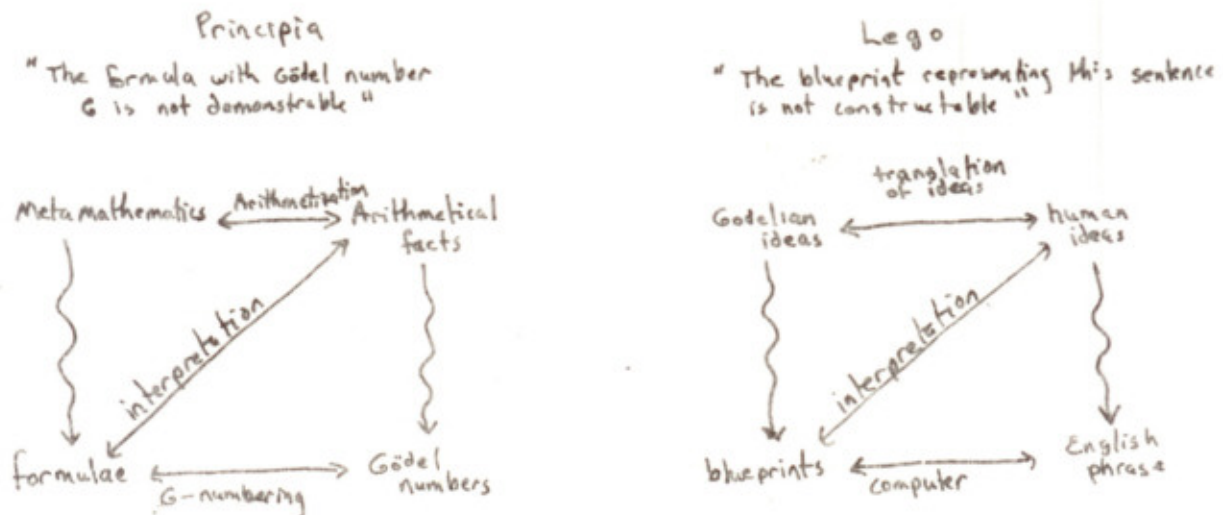 Principia
"The formula with Gödel number
G is not demonstrable"
Metamathematics
Arithmetization
Arithmetical
facts
interpretation
formulae
G-numbering
Gödel
numbers
Lego
"The blueprint representing this sentence
is not constructable"
translation
of ideas
Godelian
ideas
human
ideas
interpretation
blueprints
computer
English
phrase